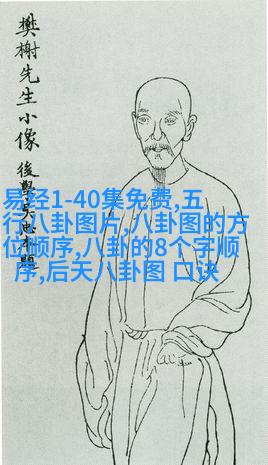 樊榭先生小像
後學
題
易经1-40集免费,五
行八卦图片,八卦图的方
位顺序,八卦的8个字顺
序,后天八卦图 口诀